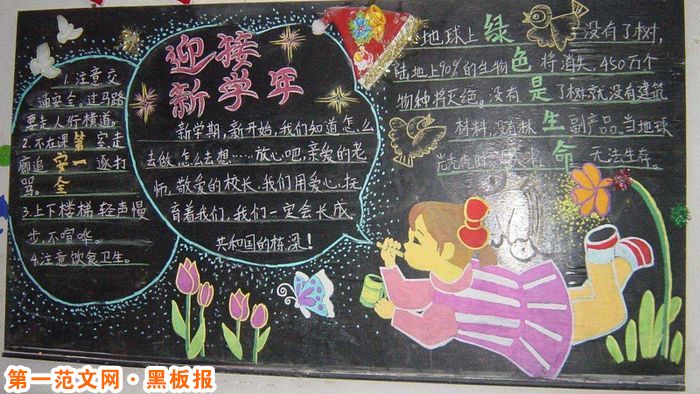 1.注意交
通安全,过马路
要走人行横道。
2.不在课第室走
廊追安一逐打
骂。全
3.上下楼梯,轻声慢
步,不喧哗。
4.注意饮食卫生。
迎接
新学年
新学期,新开始,我们知道怎么
去做,怎么去想……放心吧,亲爱的老
师,敬爱的校长,我们用爱心,抚
育着我们,我们一定会长成
共和国的栋梁!
地球上绿没有了树,
陆地上90%的生物色将消失,450万个
物种将灭绝。没有是了树就没有建筑
材料,没有林生副产品。当地球
命无法生存.
第一范文网·黑板报